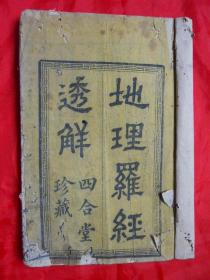 地理羅經
透解
四合堂
珍藏